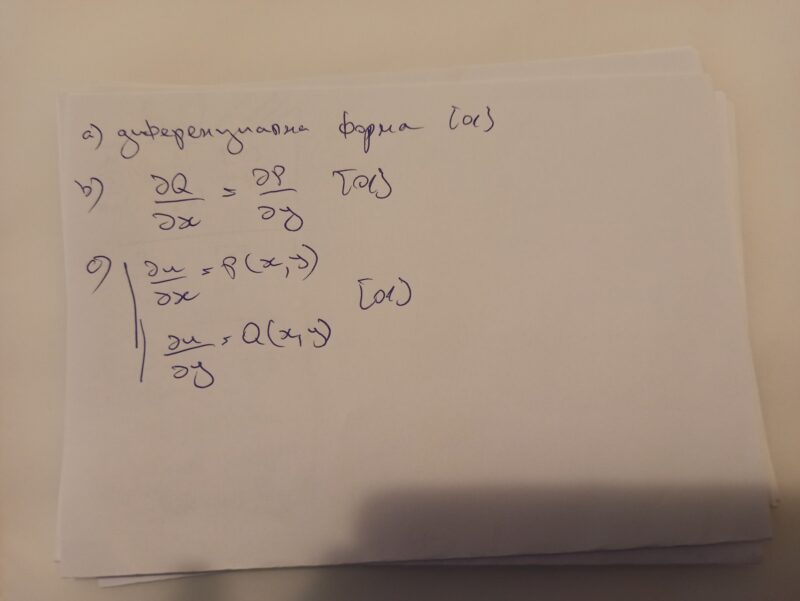 a) диференциална форма [α]
b) ∂Q/∂x = ∂P/∂y [α]
c) ∂u/∂x = P(x,y)
[α]
∂u/∂y = Q(x,y)